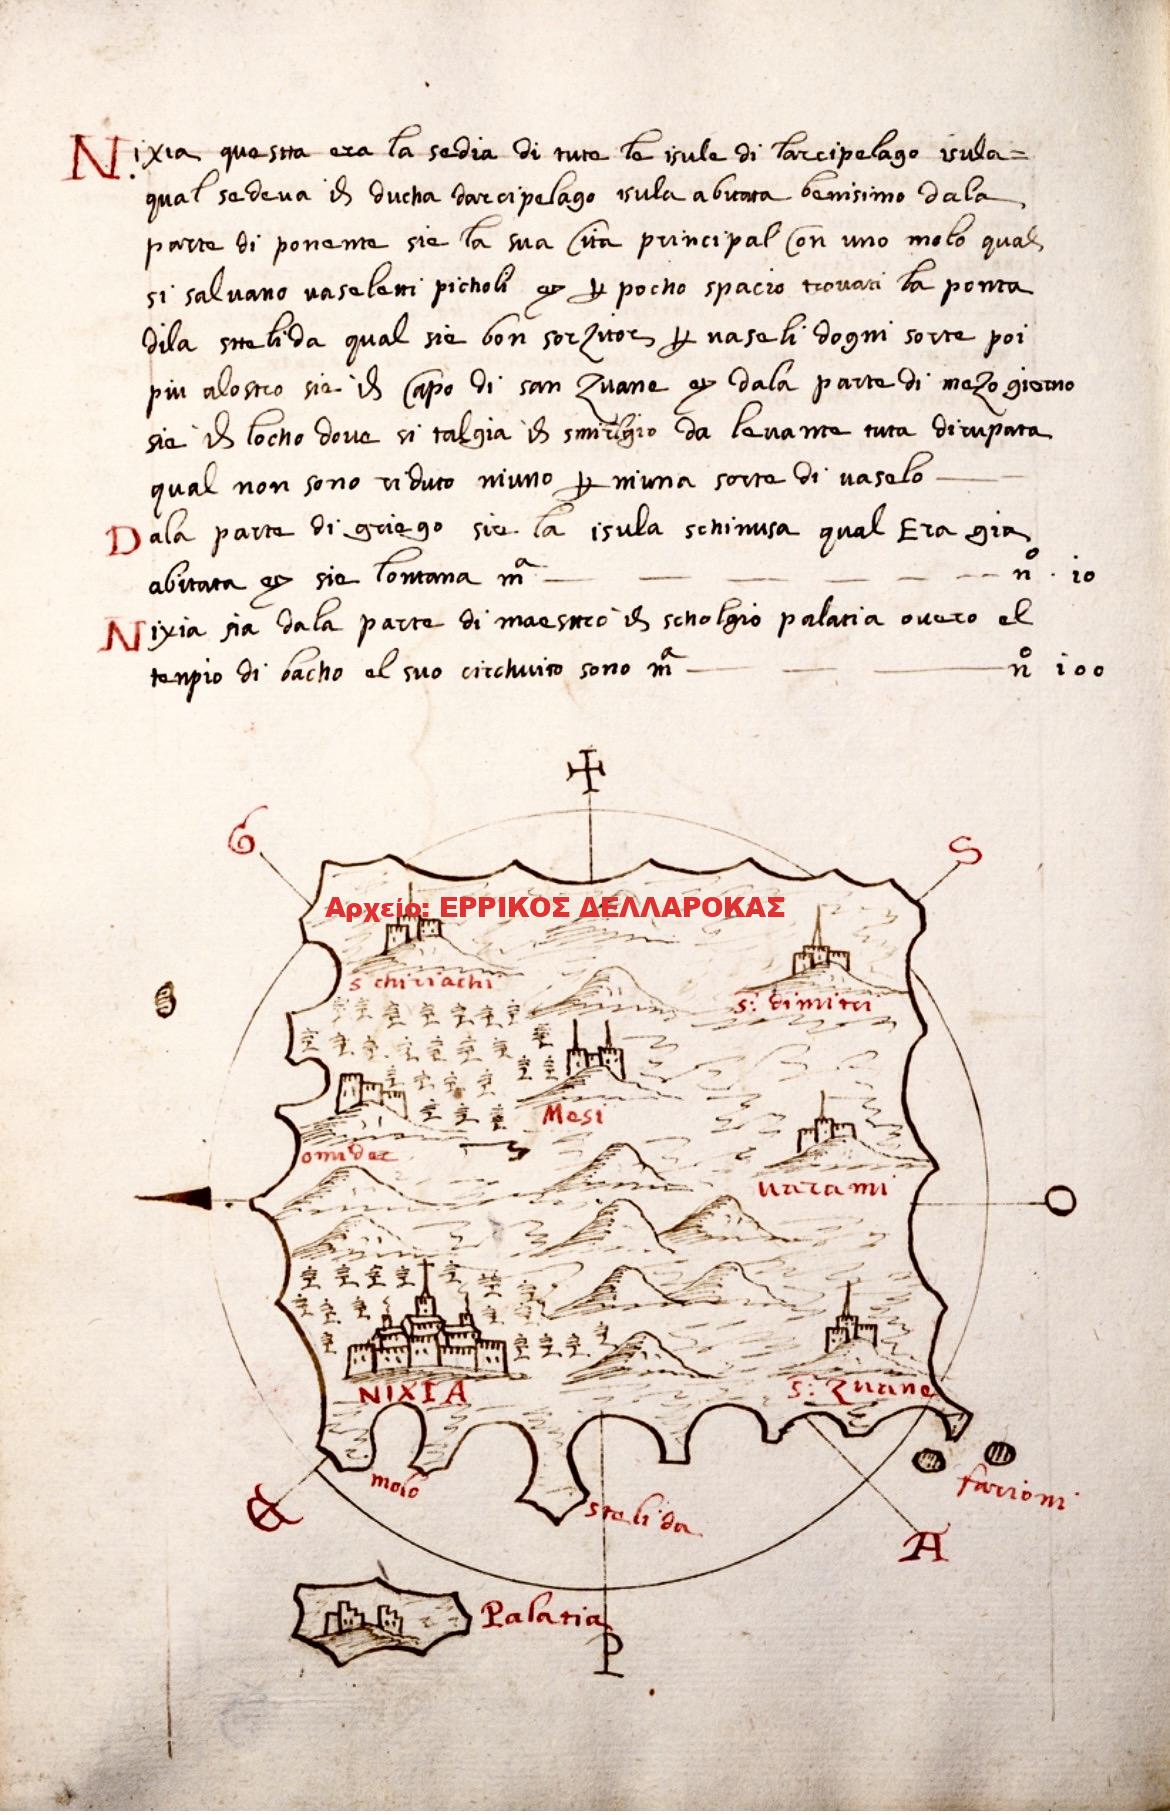 Nixia questta era la sedia di tute le isule di larcipelago isula=
qual sedeva il ducha darcipelago isula abitata benisimo dala
parte di ponente sie la sua Cita principal Con uno molo qual
si salvano vaseletti picholi et per pocho spacio trovati la ponta
dila sttelida qual sie bon sorzitor per vaseli dogni sorte poi
piu alostro sie il Capo di san Zuane et dala parte di mezo giorno
sie il locho dove si talgia il smirlgio da levante tuta dirupata
qual non sono riduto niuno per niuna sorte di vaselo
Dala parte di griego sie la isula schinusa qual Era gia
abitata et sie lontana mᵃ nº . 10
Nixia sia dala parte di maesttro il scholgio palatia overo el
tenpio di bacho el suo circhuito sono mᵃ nº 100
G
S
Αρχείο: ΕΡΡΙΚΟΣ ΔΕΛΛΑΡΟΚΑΣ
s chiriachi
s: dimitri
Mesi
varami
O
NIXIA
s: Zuane
molo
stelida
farioni
A
Palatia
P